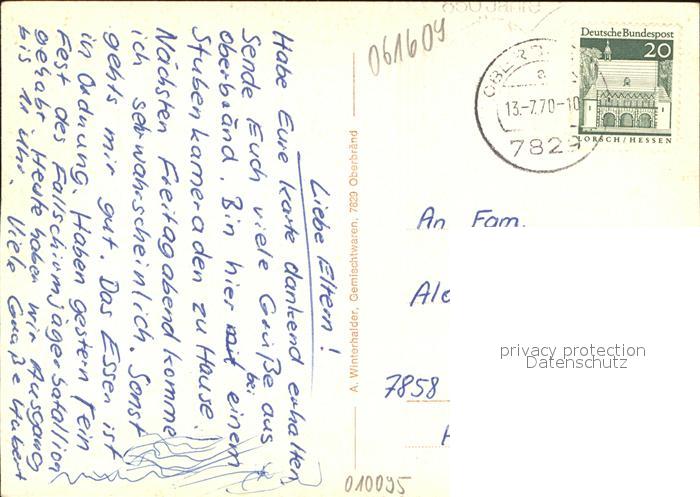 Liebe Eltern!
Habe Eure Karte dankend erhalten
Sende Euch viele Grüße aus
Oberbränd. Bin hier bei einem
Stubenkameraden zu Hause.
Nächsten Freitagabend komme
ich sehr wahrscheinlich. Sonst
gehts mir gut. Das Essen ist
in Ordnung. Haben gestern
Fest des Fallschirmjägerbatallion
gehabt. Heute haben wir Ausgang
bis 11 Uhr. Viele Grüße Hubert
A. Winterhalder, Gemischtwaren, 7829 Oberbränd
061609
Deutsche Bundespost
20
LORSCH/HESSEN
13.-7.70-10
7829
An Fam.
7858
privacy protection
Datenschutz
010095